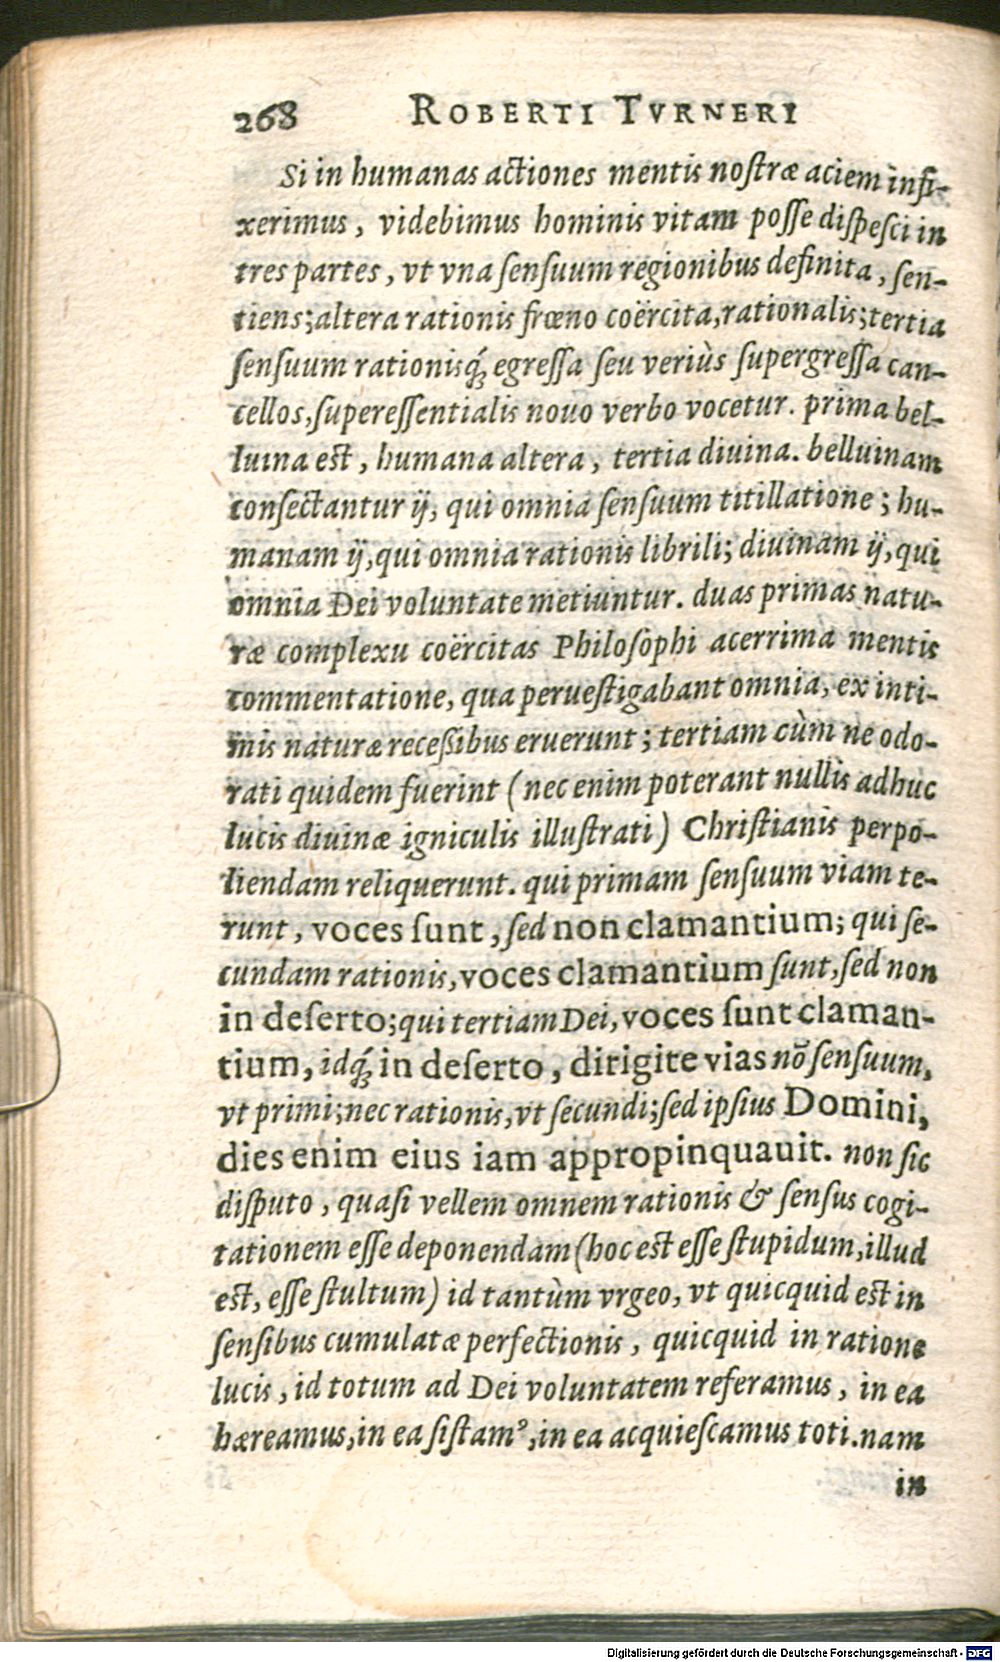 268 ROBERTI TVRNERI
Si in humanas actiones mentis nostræ aciem infi-
xerimus, videbimus hominis vitam posse dispesci in
tres partes, vt vna sensuum regionibus definita, sen-
tiens; altera rationis frœno coërcita, rationalis; tertia
sensuum rationisq́; egressa seu veriùs supergressa can-
cellos, superessentialis nouo verbo vocetur. prima bel-
luina est, humana altera, tertia diuina. belluinam
consectantur ij, qui omnia sensuum titillatione; hu-
manam ij, qui omnia rationis librili; diuinam ij, qui
omnia Dei voluntate metiuntur. duas primas natu-
ræ complexu coërcitas Philosophi acerrima mentis
commentatione, qua peruestigabant omnia, ex inti-
mis naturæ recessibus eruerunt; tertiam cùm ne odo-
rati quidem fuerint (nec enim poterant nullis adhuc
lucis diuinæ igniculis illustrati) Christianis perpo-
liendam reliquerunt. qui primam sensuum viam te-
runt, voces sunt, sed non clamantium; qui se-
cundam rationis, voces clamantium sunt, sed non
in deserto; qui tertiam Dei, voces sunt claman-
tium, idq́; in deserto, dirigite vias nō sensuum,
vt primi; nec rationis, vt secundi; sed ipsius Domini,
dies enim eius iam appropinquauit. non sic
disputo, quasi vellem omnem rationis & sensus cogi-
tationem esse deponendam (hoc est esse stupidum, illud
est, esse stultum) id tantùm vrgeo, vt quicquid est in
sensibus cumulatæ perfectionis, quicquid in ratione
lucis, id totum ad Dei voluntatem referamus, in ea
hæreamus, in ea sistamꝰ, in ea acquiescamus toti. nam
in
Digitalisierung gefördert durch die Deutsche Forschungsgemeinschaft - DFG